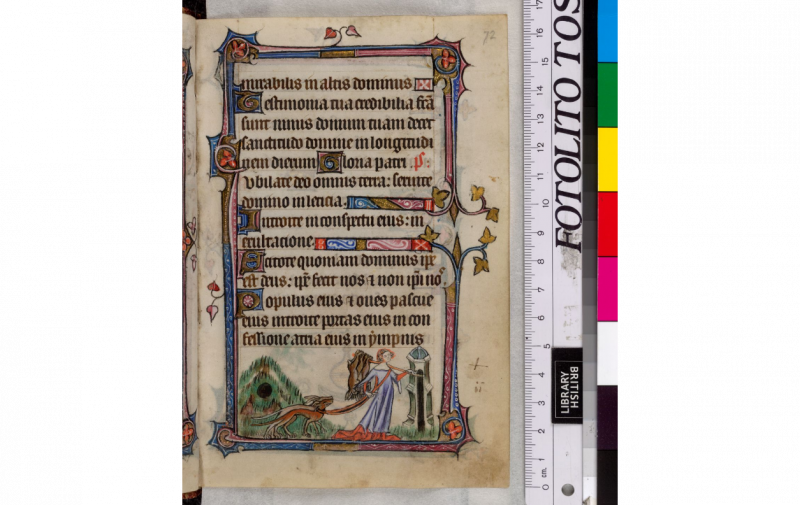 72
mirabilis in altis dominus
Testimonia tua credibilia facta
sunt nimis domum tuam decet
sanctitudo domine in longitudi
nem dierum Gloria patri. ps.
Vbilate deo omnis terra: seruite
domino in leticia.
Introite in conspectu eius: in
exultacione.
Scitote quoniam dominus ipse
est deus: ipse fecit nos & non ipsi nos.
Populus eius & oues pascue
eius introite portas eius in con
fessione atria eius in ympnis
ii
FOTOLITO TOS
BRITISH
LIBRARY
17
16
15
14
13
12
11
10
9
8
7
6
5
4
3
2
1
0 cm.